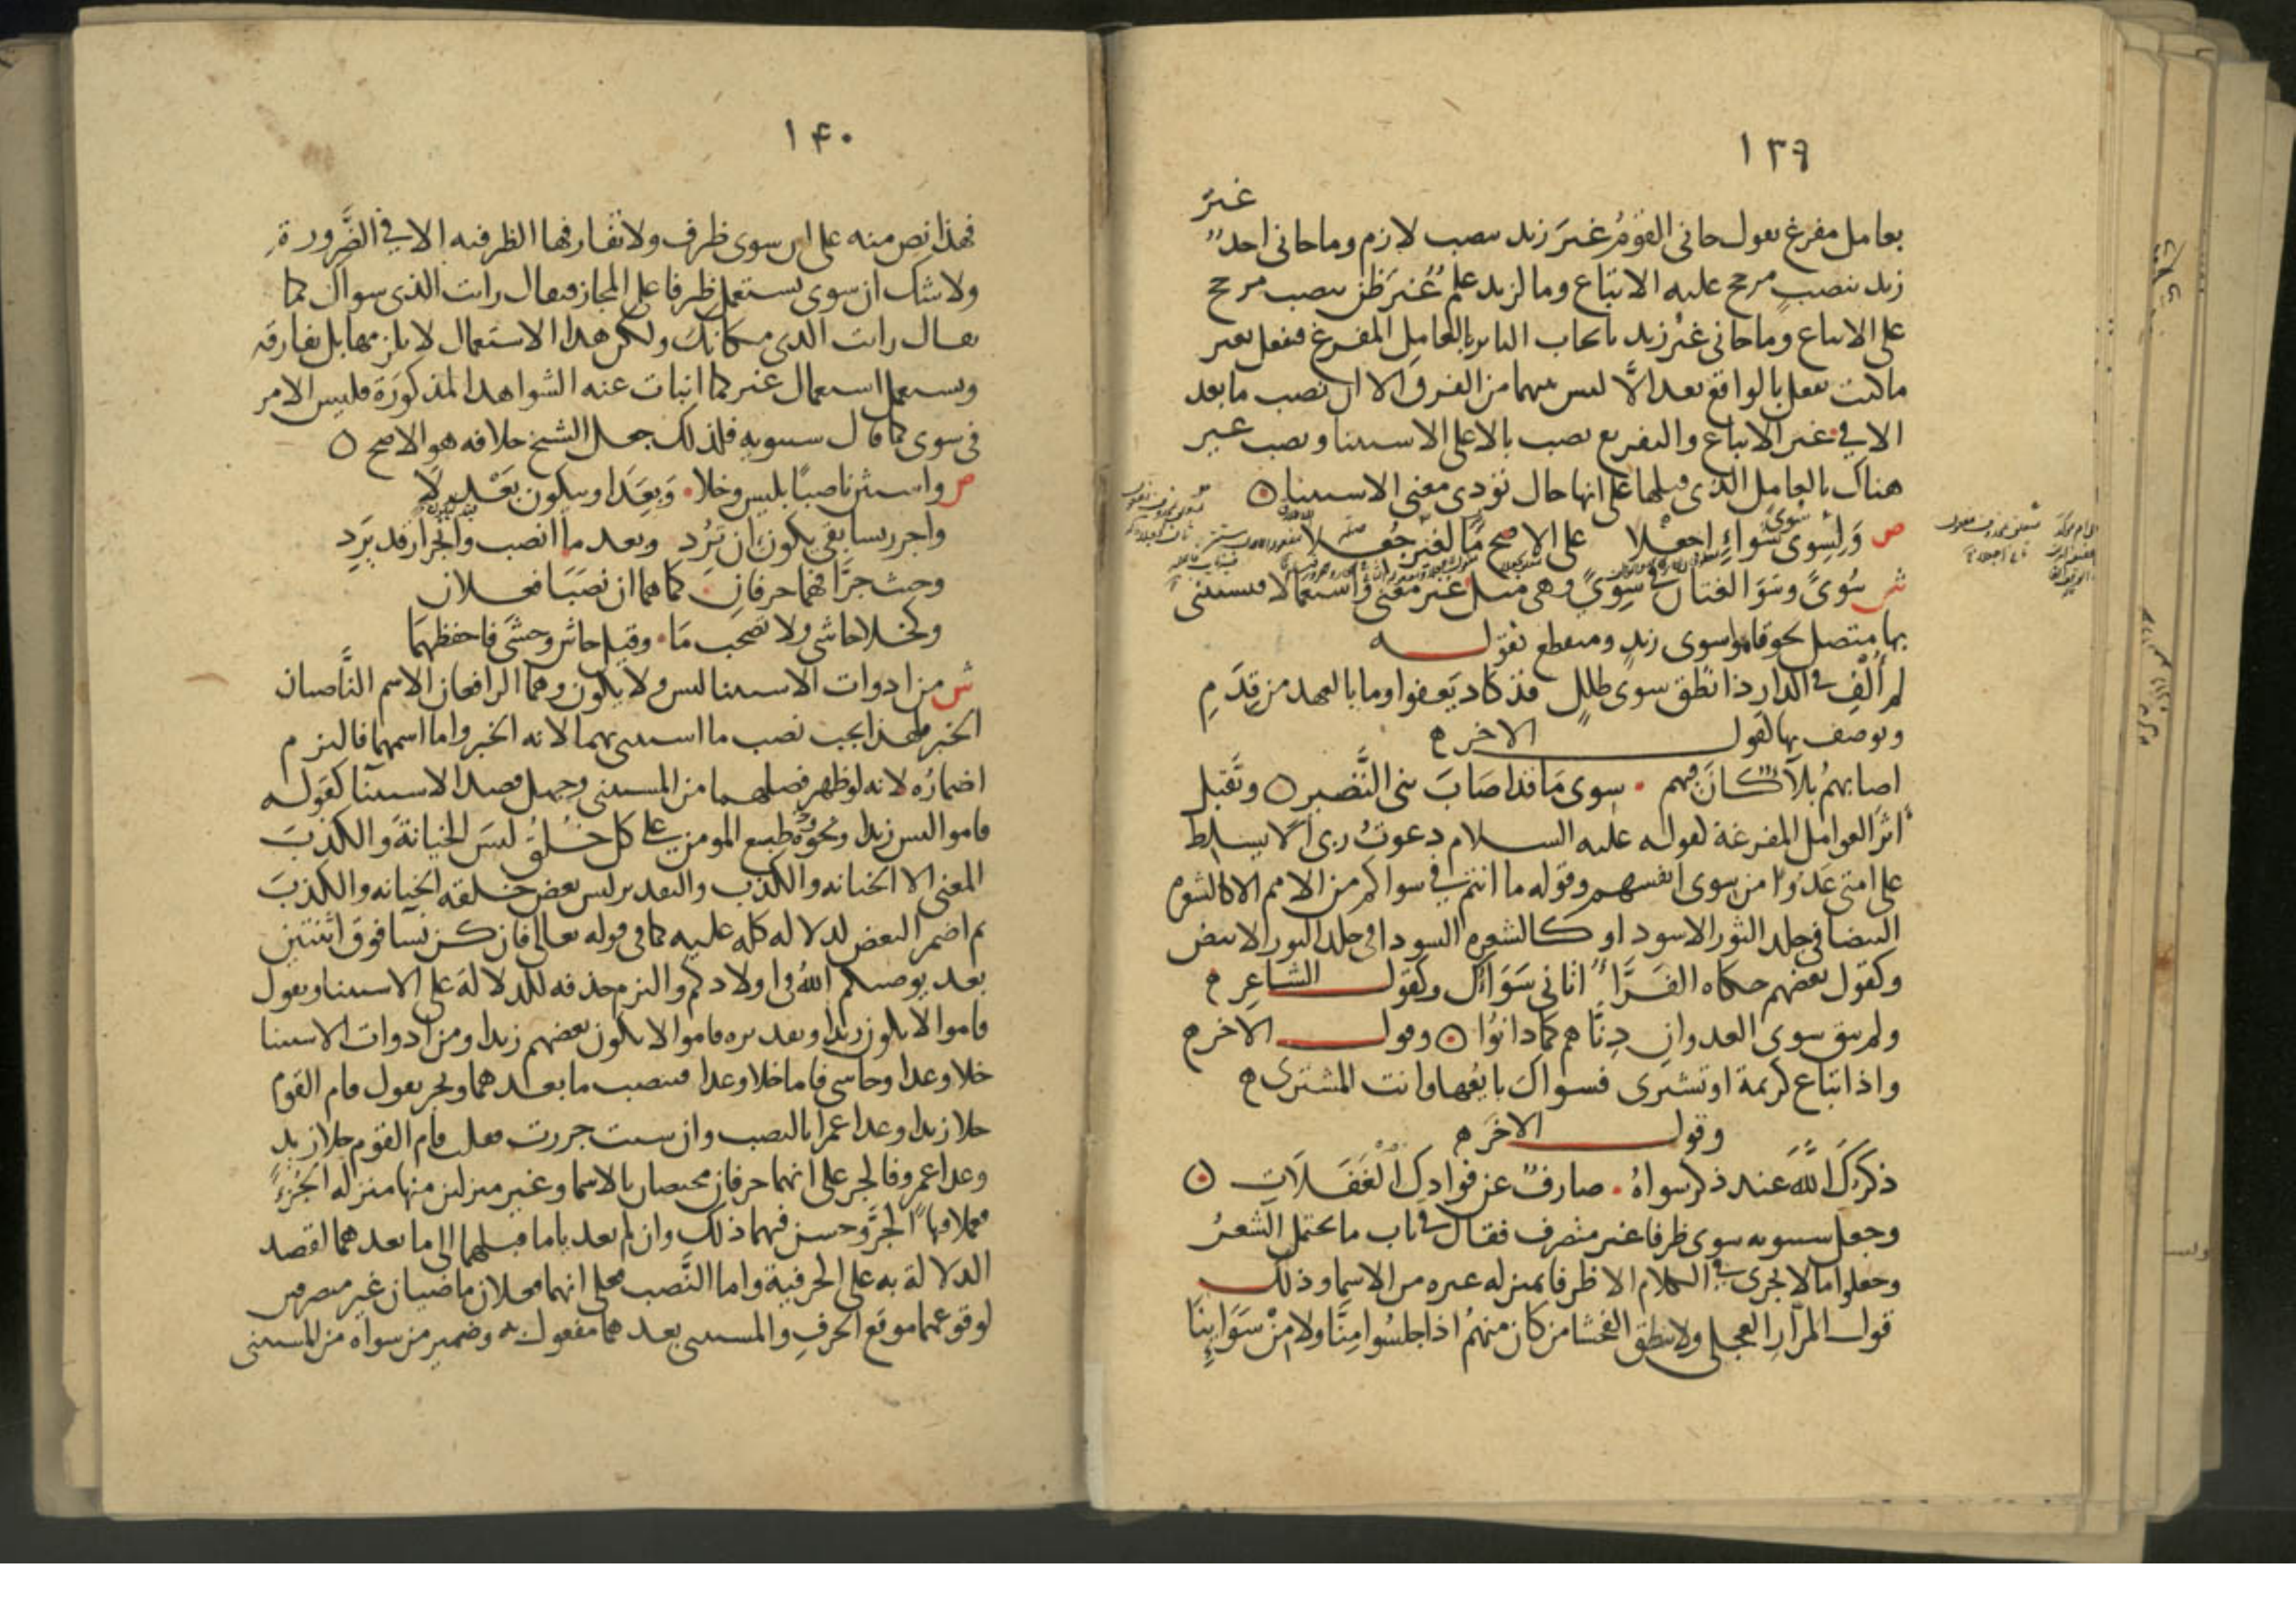 ١٣٩
غيرَ
بعامل مفرغ تقول جاني القومُ غيرَ زيد بنصب لازم وما جاني احدٌ
زيد بنصبٍ مرجح عليه الاتباع وما لزيد علمٌ غيرَ ظن بنصب مرجح
على الاتباع وما جاني غيرُ زيد بايجاب التاثر بالعامل المفرغ فتفعل بغير
ما كنت تفعل بالواقع بعد الَّا ليس بينهما من الفرق الا ان نصب ما بعد
الا في غير الاتباع والتفريغ نصب بالا على الاستثنا ونصب غير
هناك بالعامل الذي قبلها على انها حال تؤدي معنى الاستثنا
ص وَلِسِوى سُوىً سَواءٍ اجعلا على الاصح مَا لغيرٍ جُعِلا
ش سُوىً وسَوَا لغتان في سِوىً وهي مثل غير معنى واستعمالا فيستثنى
بها متصل نحو قاموا سوى زيدٍ ومنقطع كقوله
لم أُلْفِ في الدار ذا نطق سوى طلل قد كاد يعفوا وما بالعهد من قِدَمِ
وتوصف بها كقول الاخر
اصابهمُ بلاءٌ كانَ فيهم سوى مَا قد اصَابَ بني النَّضير وتقبل
أثرَ العوامل المفرغة كقوله عليه السلام دعوتُ ربي الا يسلط
على امتي عَدُوًّا من سوى انفسهم وقوله ما انتم في سواكم من الامم الا كالشعرة
البيضا في جلد الثور الاسود او كالشعرة السودا في جلد الثور الابيض
وكقول بعضهم حكاه الفَرَّاءُ اتاني سَوَاؤُك وكقول الشاعِر
ولم يبق سوى العدوانِ دِنَّاهم كمَا دانوُا وقول الاخر
واذا تباع كريمة او تشترى فسواك بايعُها وانت المشتري
وقول الاخَر
ذكرَكَ اللَّهَ عند ذكر سواهُ صارفٌ عن فوادِك الْغَفَلَاتِ
وجعل سيبويه سوى ظرفا غير متصرف فقال في باب ما يحتمل الشعرُ
وجعلوا ما لا يجري في الكلام الا ظرفا بمنزله غيره من الاسما وذلك
قول المرَّارِ العجلي ولا ينطق الفحشا من كان منهمُ اذا جلسُوا مِنَّا ولا مِنْ سَوَايِنَا
١۴٠
فهذا نص منه على ان سوى ظرف ولا تفارقها الظرفيه الا في الضَّرورة
ولا شك ان سوى يستعمل ظرفا على المجاز فيقال رايت الذي سواك كما
يقال رايت الذي مكانك ولكن هذا الاستعمال لا يلزمها بل تفارقه
وتستعمل استعمال غير كما انبات عنه الشواهد المذكورَة فليس الامر
في سوى كما قال سيبويه فلذلك جعل الشيخ خلافه هو الاصح
ص واستثن ناصبًا بليس وخلا وَبِعَدَا وبيكون بَعْد لَا
واجرر بسابقي يكون ان تُرِد وبعد ما انصب وانجرار قد يَرِد
وحيث جرَّا فهما حرفان كما هما ان نصَبَا فعلان
وكخلا حاشى ولا تصحب مَا وقيل حاش وحشَى فاحفظهمَا
ش من ادوات الاستثنا ليس ولا يكون وهما الرافعان الاسم النَّاصبان
الخبر فلهذا يجب نصب ما استثني بهما لانه الخبر واما اسمهما فالتزم
اضمارُه لانه لو ظهر فصلهما من المستثنى وجهل قصد الاستثنا كقوله
قاموا ليس زيدا ونحوُه يطبع المومن على كل خُلُقٌ ليسَ الخيانةَ والكذبَ
المعنى الا الخيانه والكذب والتقدير ليس بعض خلقه الخيانه والكذبَ
ثم اضمر البعض لدلاله كله عليه كما في قوله تعالى فان كن نسآ فوق اثنتين
بعد يوصيكم اللهُ في اولادكم والتزم حذفه للدلالة على الاستثنا وتقول
قاموا لا يكون زيدا وتقديره قاموا لا يكون بعضهم زيدا ومن ادوات الاستثنا
خلا وعدا وحاشى فاما خلا وعدا فينصب ما بعدهما ويجر تقول قام القوم
خلا زيدا وعدا عمرا بالنصب وان شيت جررت فقلت قام القوم خلا زيد
وعدا عمرو فالجر على انهما حرفان مختصان بالاسما وغير منزلين منها منزله الجُزءِ
فعملا فيها الجرَّ وحسن فيهما ذلك وان لم يعديا ما قبلهما الى ما بعدهما لقصد
الدلالة به على الحرفية واما النَّصب فعلى انهما فعلان ماضيان غير متصرفين
لوقوعهما موقع الحرفِ والمستثنى بعدهما مفعول به وضمير من سواه من المستثنى